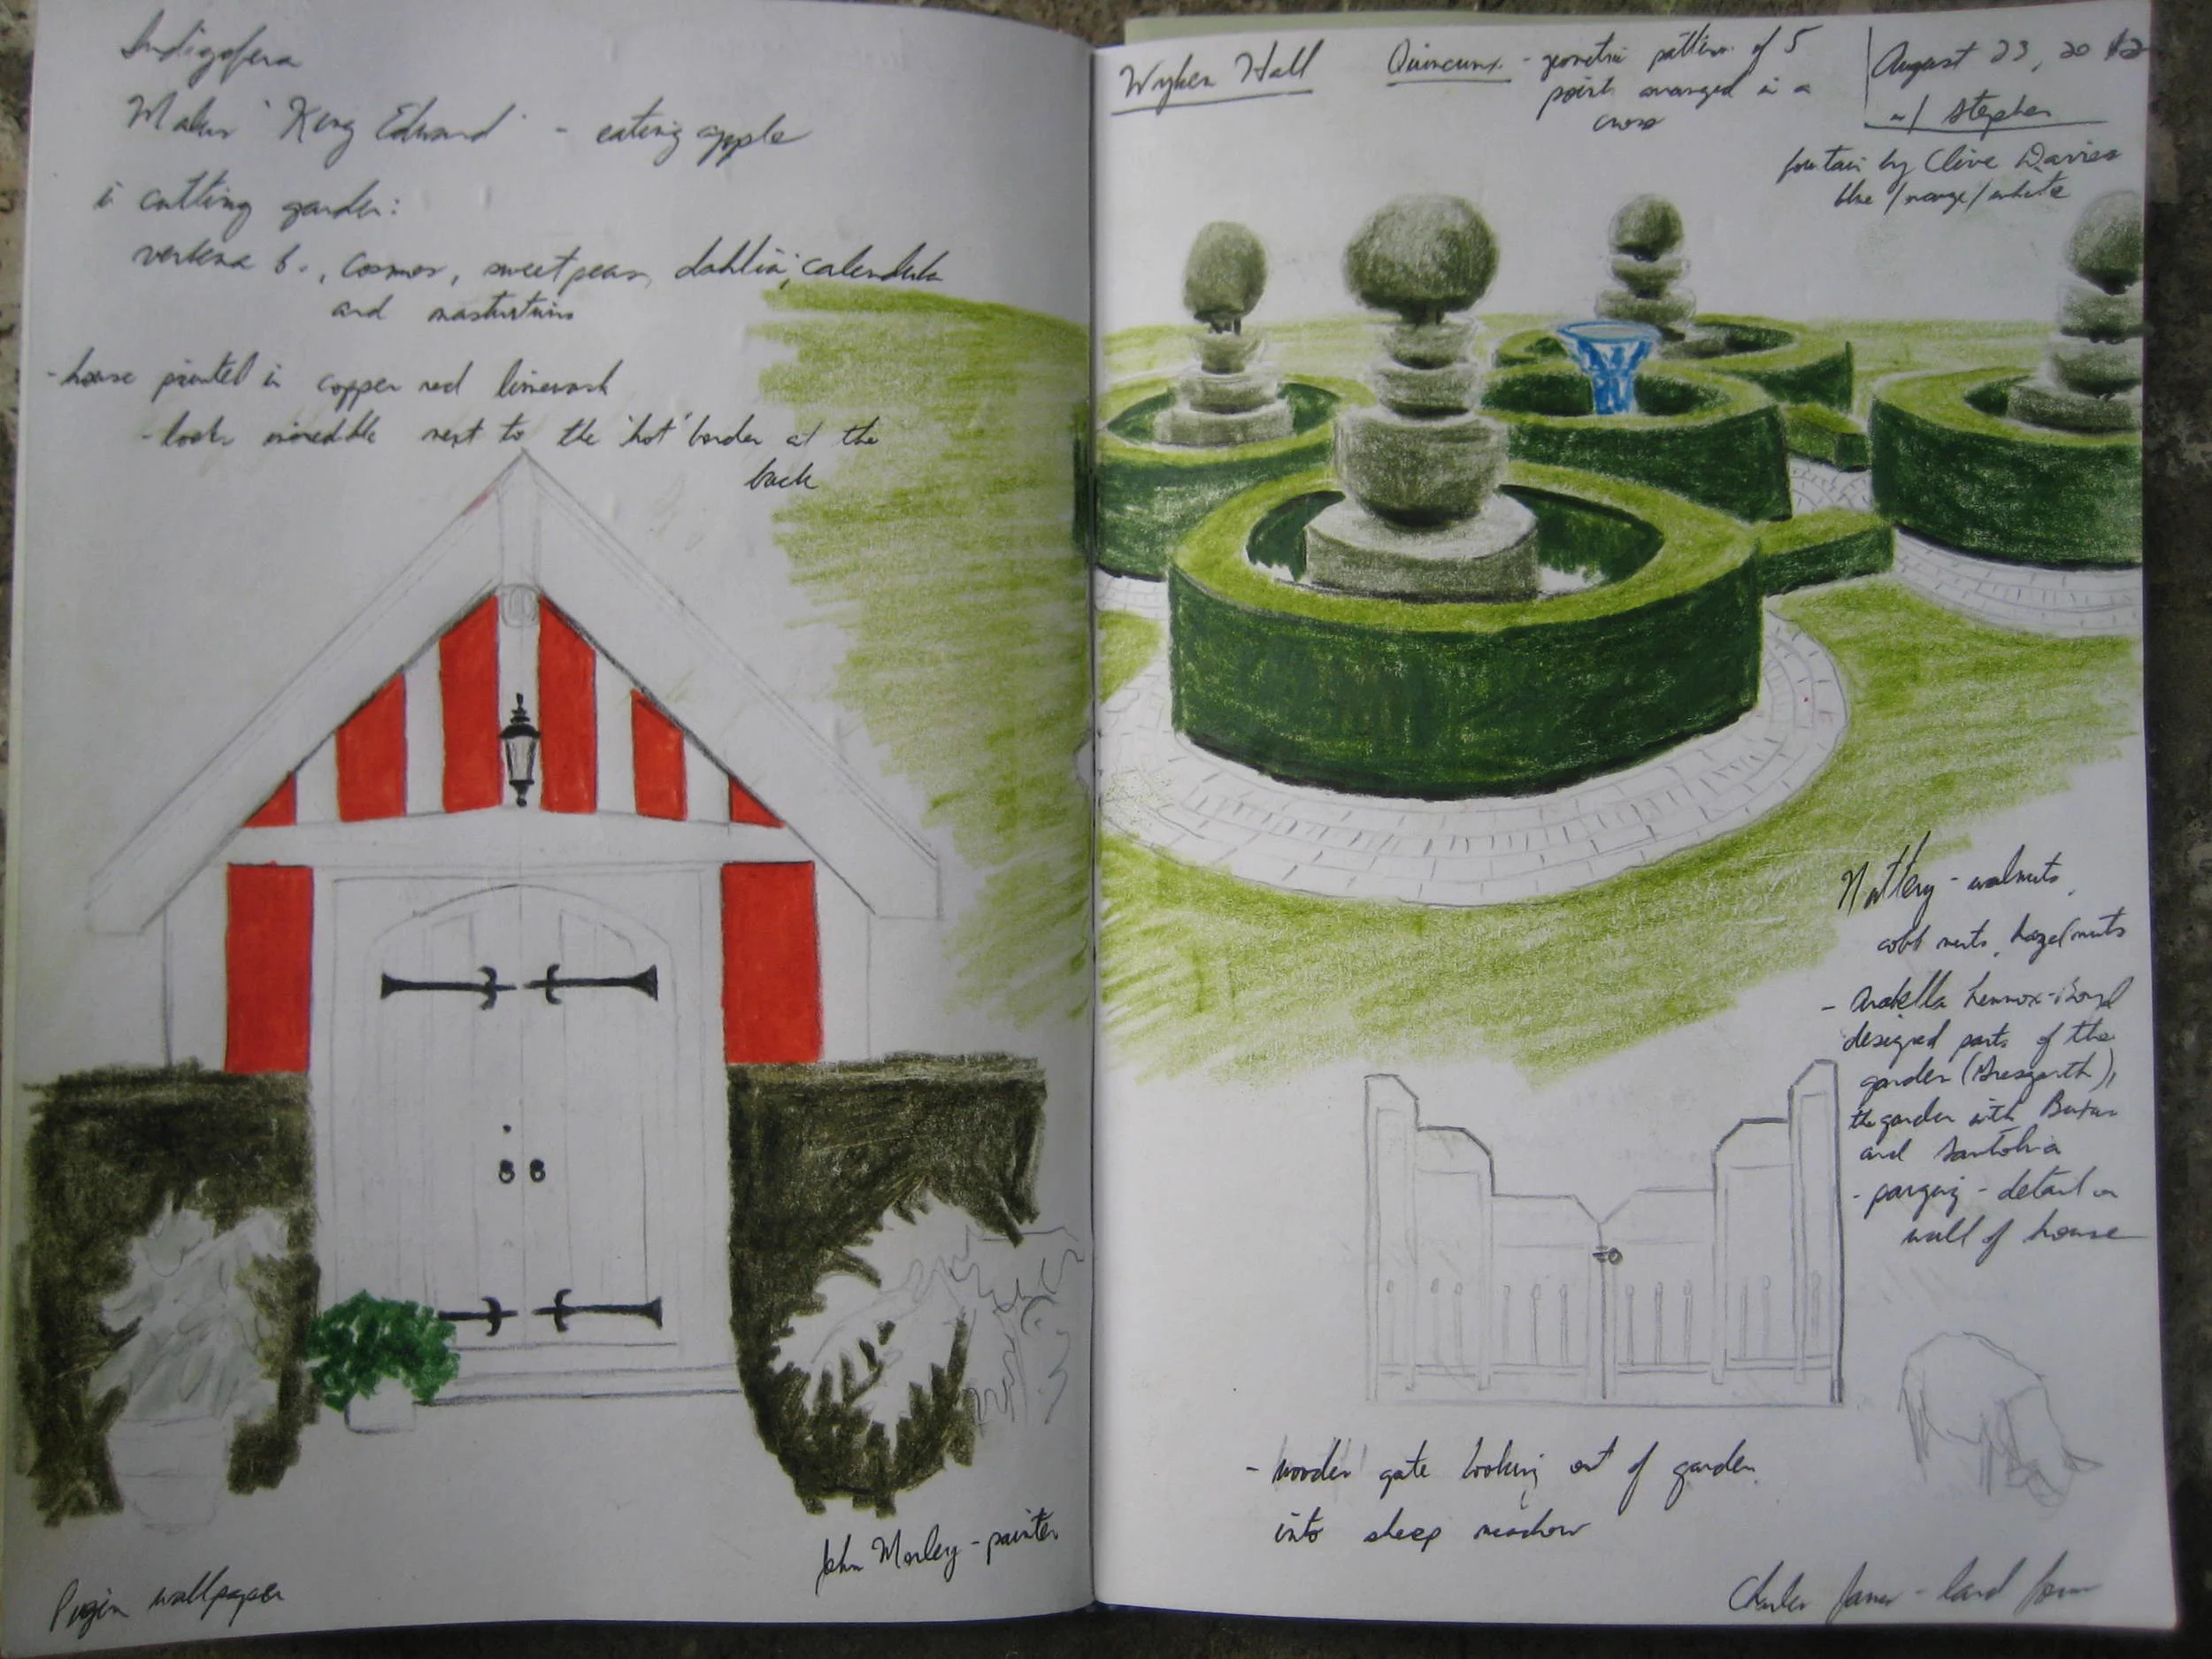 Indigofera
Malus 'King Edward' - eating apple
in cutting garden:
verbena b., cosmos, sweet peas, dahlia, calendula
and nasturtiums
- house painted in copper red limewash
- looks incredible next to the 'hot' border at the
back
John Morley - painter
Pugin wallpaper
Wyken Hall
Quincunx - geometric pattern of 5
points arranged in a
cross
August 23, 2012
w/ Stephen
fountain by Clive Davies
blue/orange/white
Nuttery - walnuts,
cobb nuts, hazelnuts
- Arabella Lennox-Boyd
designed parts of the
garden (Gresgarth),
the garden with Buxus
and Santolina
- parging - detail on
wall of house
- wooden gate looking out of garden
into sheep meadow
Charles - land form